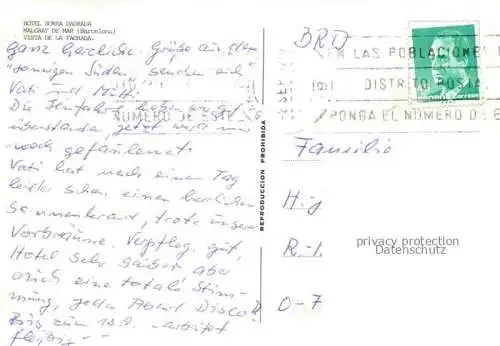 HOTEL SORRA DAURADA
MALGRAT DE MAR (Barcelona)
VISTA DE LA FACHADA.
Ganz herzliche Grüße aus dem
"sonnigen Süden" senden euch
Vati und Mutti.
Die Hinfahrt haben wir gut
überstanden, jetzt wird nur
noch gefaulenzt.
Vati hat nach einem Tag
leider schon einen herrlichen
Sonnenbrand, trotz unserer
Vorbräune. Verpfleg. gut,
Hotel sehr sauber aber
auch eine totale Stim-
mung, jeden Abend Disco!
Bis zum 12.9. - arbeitet
fleißig -
NUMERO DE ESTE
REPRODUCCION PROHIBIDA
BRD
EN LAS POBLACIONES
DISTRITO POSTA
PONGA EL NUMERO DE E
Familie
H-j
R-l.
0-7
privacy protection
Datenschutz